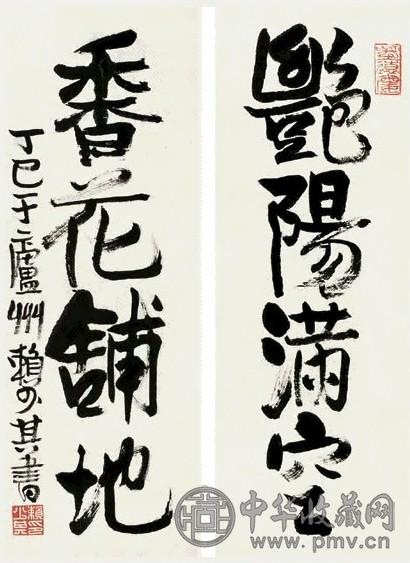 艷陽滿空
香花舖地
丁巳于廬州 賴少其書
中华收藏网
www.pmv.cn